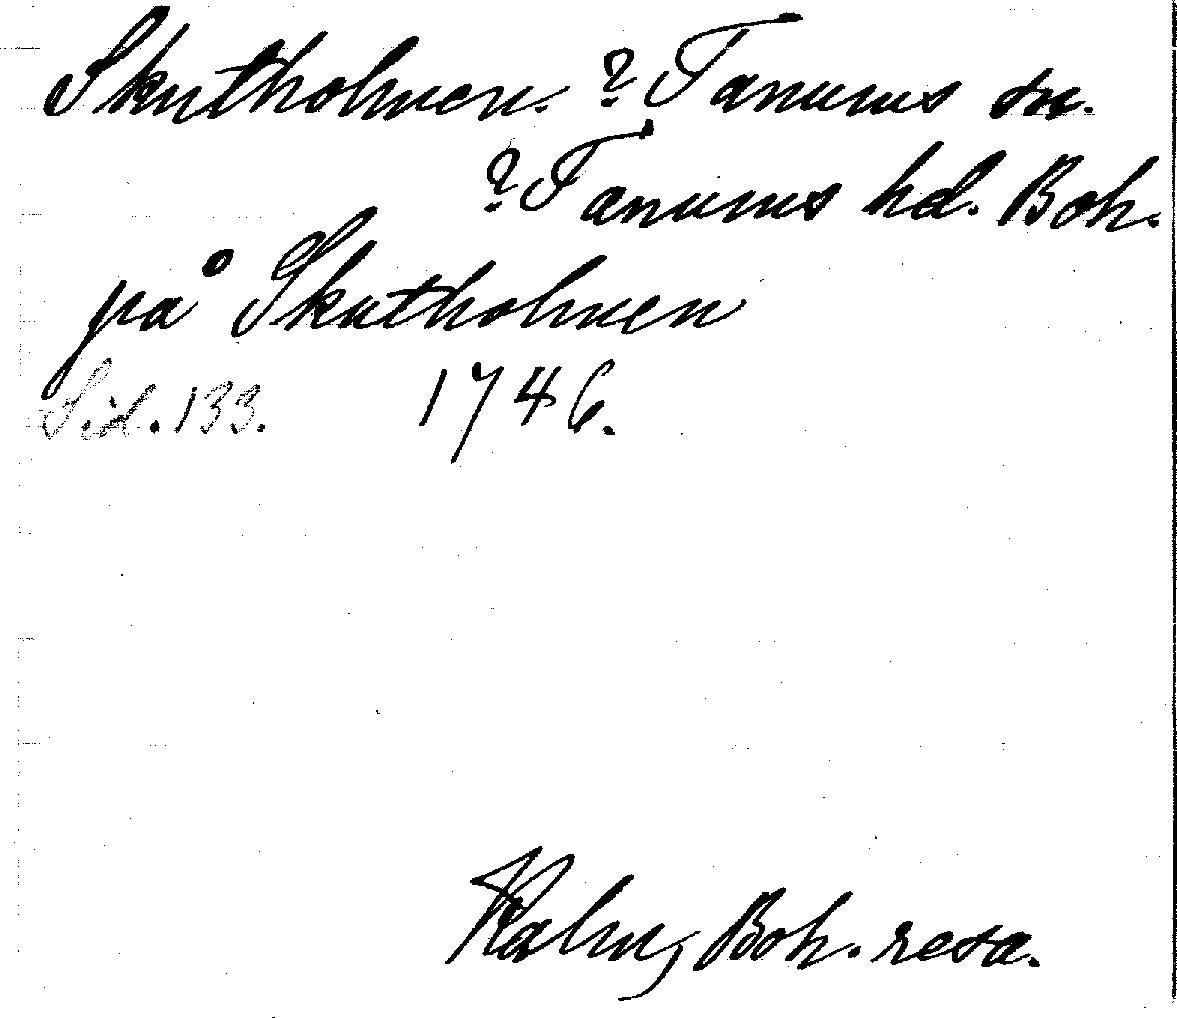 Skutholmen. ? Tanums sn.
? Tanums hd. Boh.
på Skutholmen
Sid. 133. 1746.
Kalm, Boh. resa.